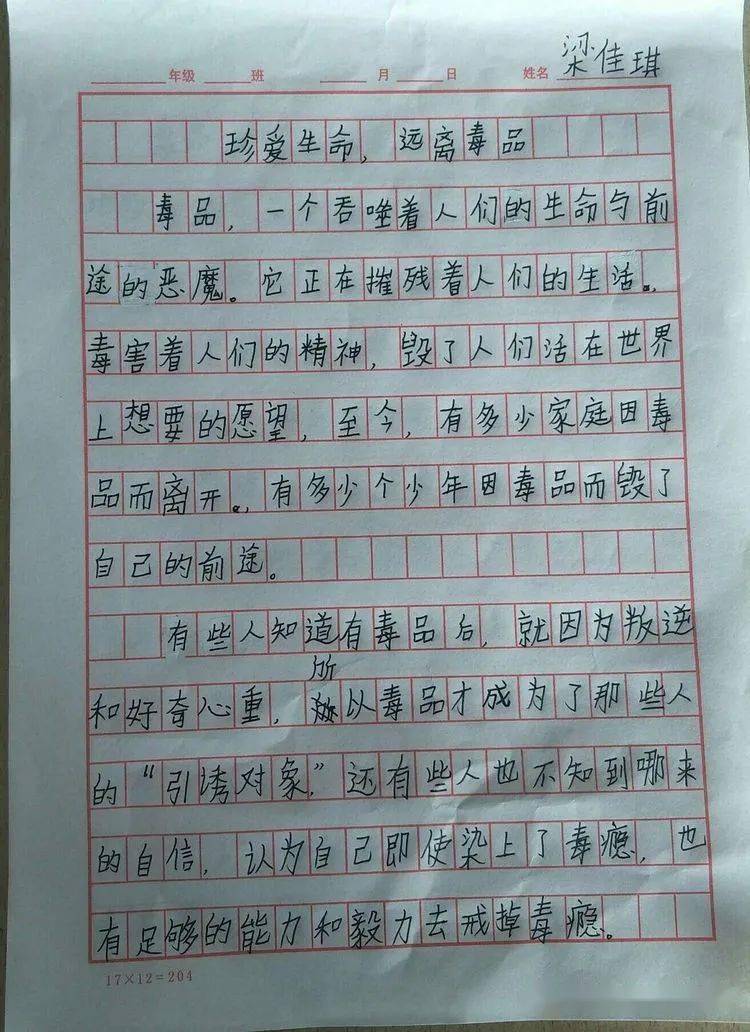 年级 班 月 日 姓名 梁佳琪
珍爱生命，远离毒品
毒品，一个吞唑着人们的生命与前
途的恶魔。它正在摧残着人们的生活。，
毒害着人们的精神，毁了人们活在世界
上想要的愿望，至今，有多少家庭因毒
品而离开。，有多少个少年因毒品而毁了
自己的前途。
有些人知道有毒品后，就因为叛逆
和好奇心重，所以毒品才成为了那些人
的“引诱对象”，还有些人也不知到哪来
的自信，认为自己即使染上了毒瘾，也
有足够的能力和毅力去戒掉毒瘾。
17×12=204